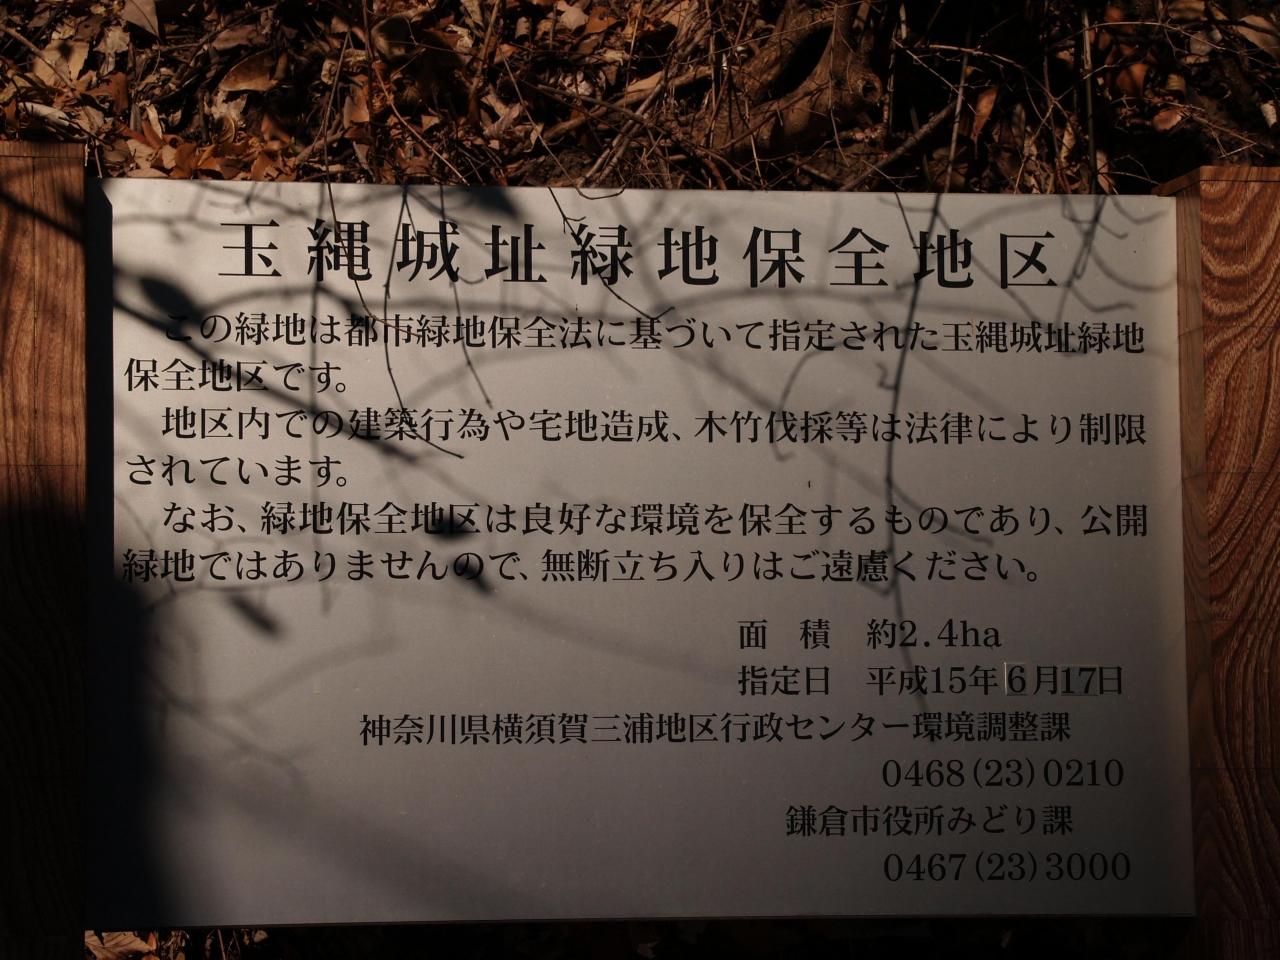 玉縄城址緑地保全地区
この緑地は都市緑地保全法に基づいて指定された玉縄城址緑地
保全地区です。
地区内での建築行為や宅地造成、木竹伐採等は法律により制限
されています。
なお、緑地保全地区は良好な環境を保全するものであり、公開
緑地ではありませんので、無断立ち入りはご遠慮ください。
面　積　約2.4ha
指定日　平成15年6月17日
神奈川県横須賀三浦地区行政センター環境調整課
0468(23)0210
鎌倉市役所みどり課
0467(23)3000